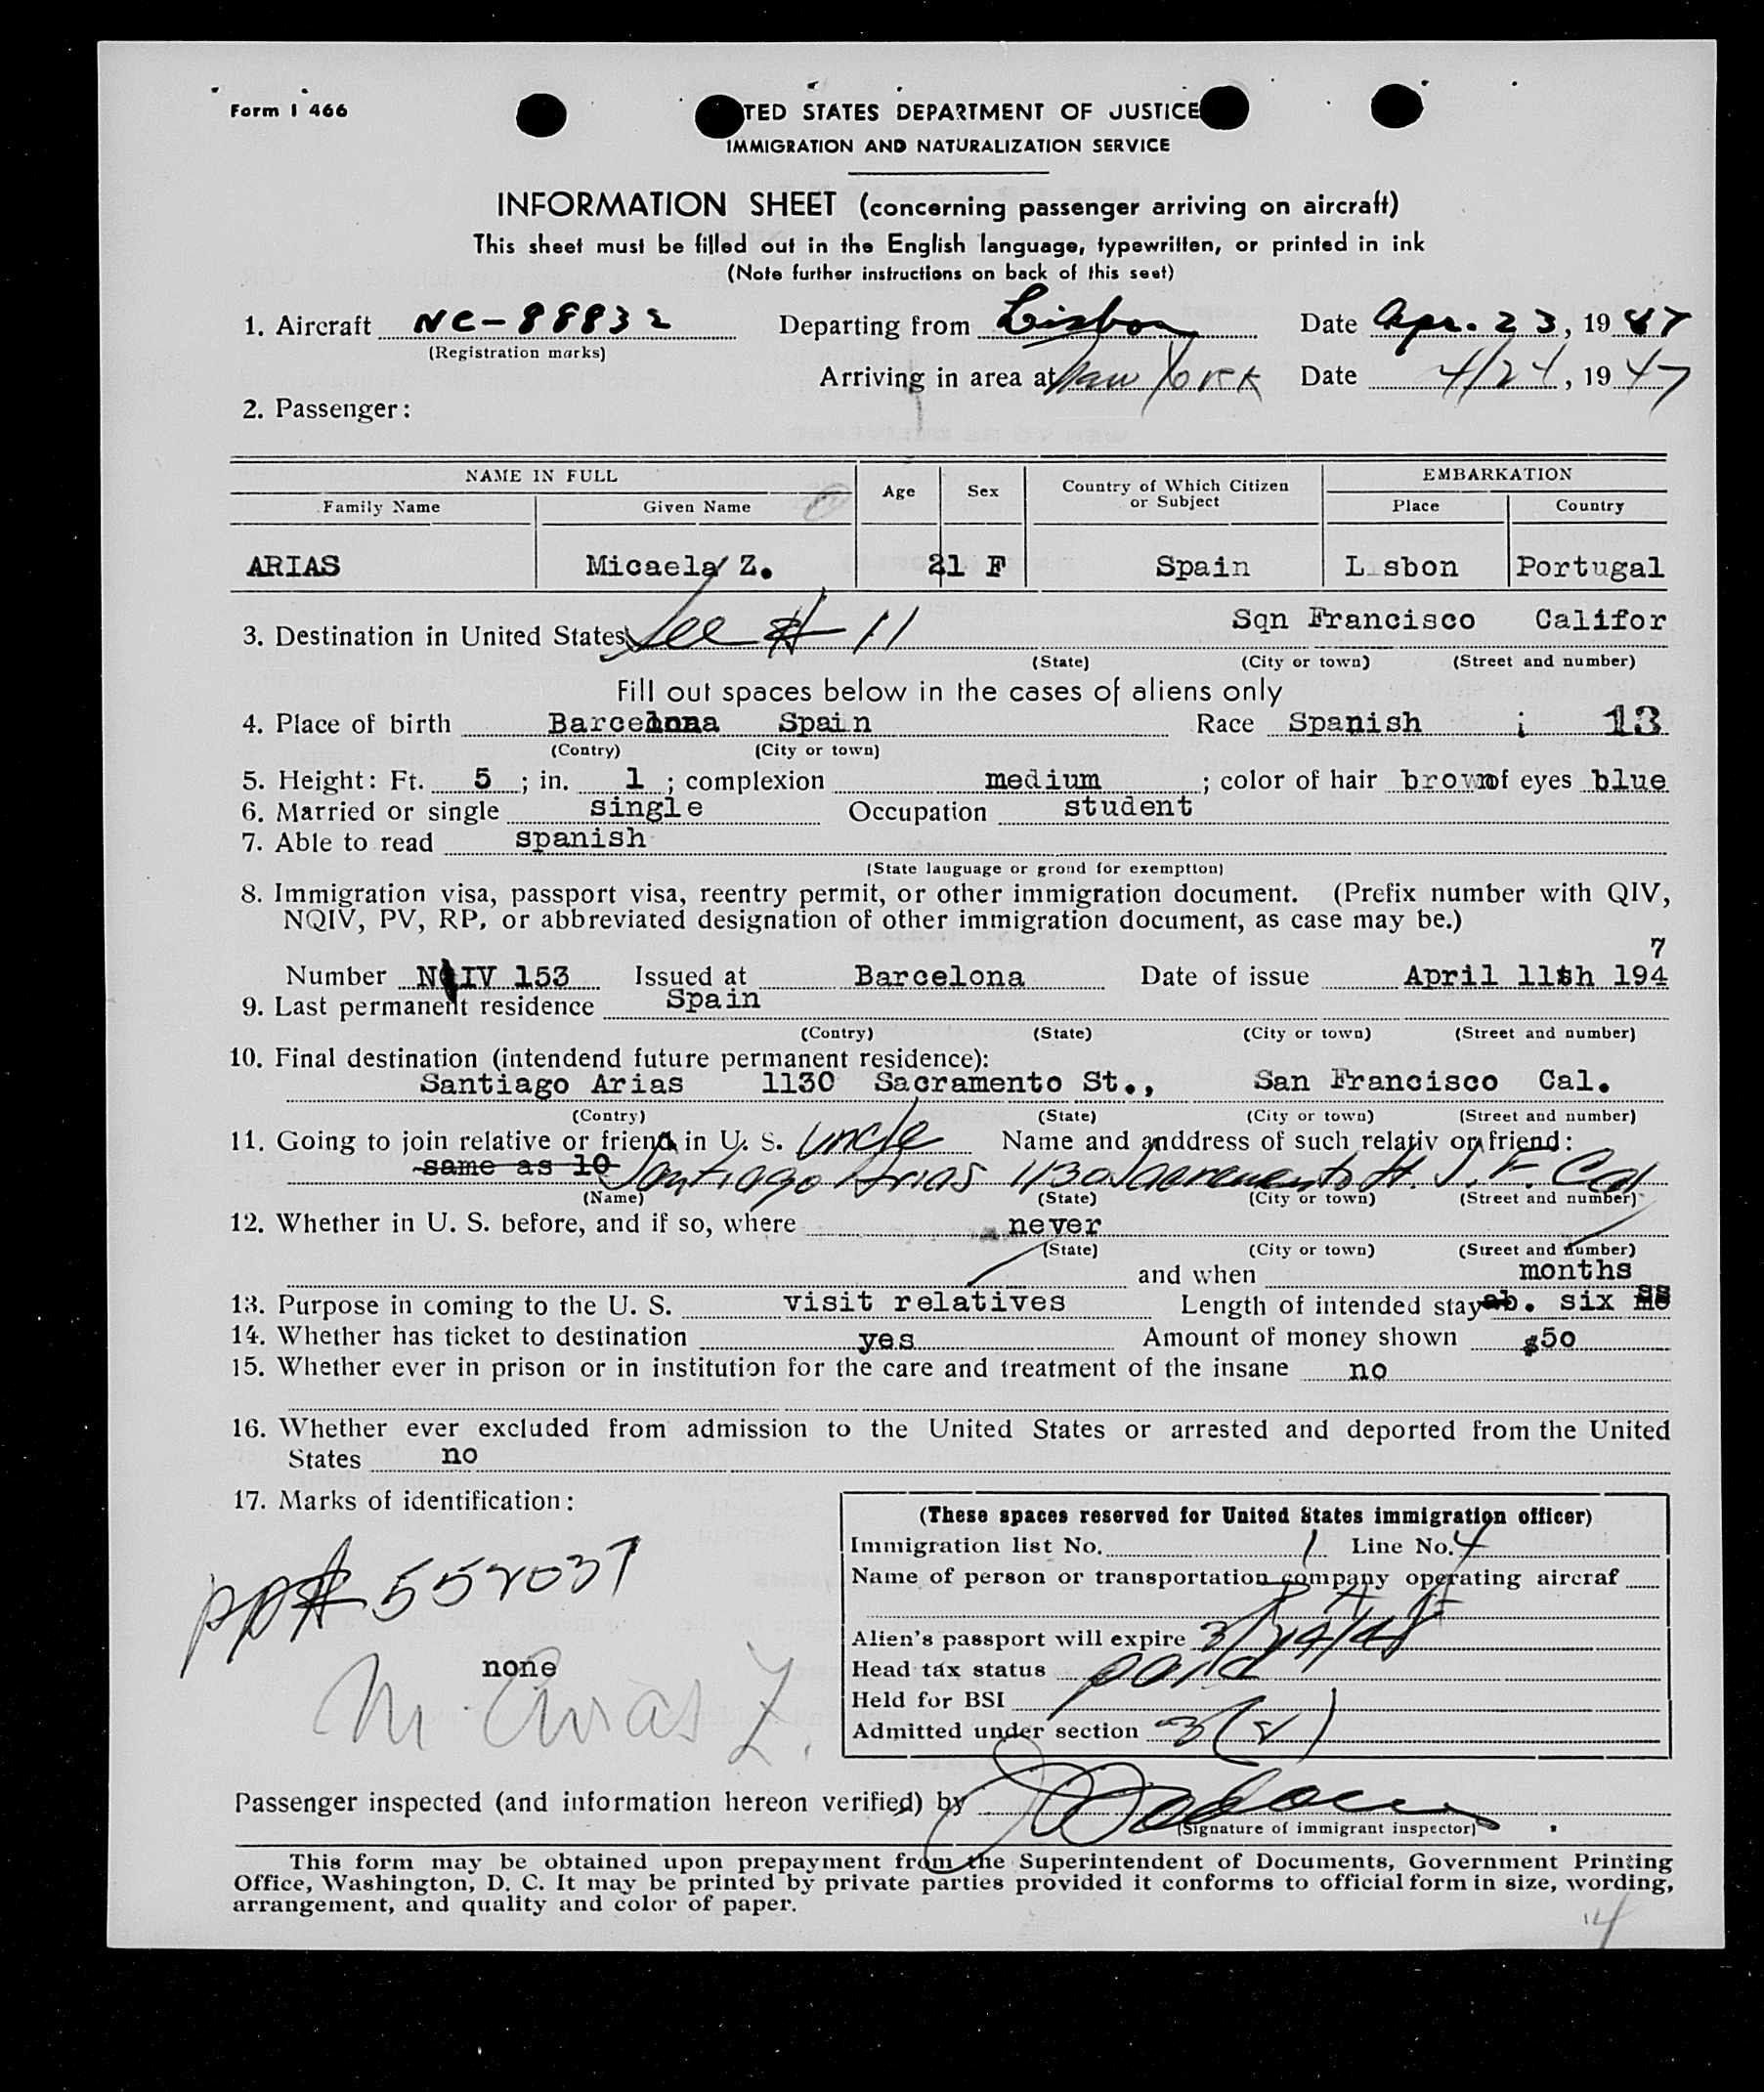 Form I 466
TED STATES DEPARTMENT OF JUSTICE
IMMIGRATION AND NATURALIZATION SERVICE
INFORMATION SHEET (concerning passenger arriving on aircraft)
This sheet must be filled out in the English language, typewritten, or printed in ink
(Note further instructions on back of this seet)
1. Aircraft NC-88832 Departing from Lisbon Date Apr. 23, 1947
(Registration marks)
Arriving in area at New York Date 4/24, 1947
2. Passenger:
NAME IN FULL Age Sex Country of Which Citizen or Subject EMBARKATION
Family Name Given Name Place Country
ARIAS Micaela Z. 21 F Spain L sbon Portugal
3. Destination in United States See # 11 Sqn Francisco Califor
(State) (City or town) (Street and number)
Fill out spaces below in the cases of aliens only
4. Place of birth Barcelona Spain Race Spanish ; 13
(Contry) (City or town)
5. Height: Ft. 5 ; in. 1 ; complexion medium ; color of hair brown of eyes blue
6. Married or single single Occupation student
7. Able to read spanish
(State language or grond for exemption)
8. Immigration visa, passport visa, reentry permit, or other immigration document. (Prefix number with QIV,
NQIV, PV, RP, or abbreviated designation of other immigration document, as case may be.)
7
Number NQIV 153 Issued at Barcelona Date of issue April 11th 194
9. Last permanent residence Spain
(Contry) (State) (City or town) (Street and number)
10. Final destination (intendend future permanent residence):
Santiago Arias 1130 Sacramento St., San Francisco Cal.
(Contry) (State) (City or town) (Street and number)
11. Going to join relative or friend in U. S. Uncle Name and anddress of such relativ or friend:
same as 10 Santiago Arias 1130 Sacramento St. S. F. Cal
(Name) (State) (City or town) (Street and number)
12. Whether in U. S. before, and if so, where never
(State) (City or town) (Street and number)
and when months
13. Purpose in coming to the U. S. visit relatives Length of intended stay ab. six
14. Whether has ticket to destination yes Amount of money shown $50
15. Whether ever in prison or in institution for the care and treatment of the insane no
16. Whether ever excluded from admission to the United States or arrested and deported from the United
States no
17. Marks of identification:
pp# 552037
none
M. Arias Z.
(These spaces reserved for United States immigration officer)
Immigration list No. 1 Line No. 4
Name of person or transportation company operating aircraf
Alien's passport will expire 3/24/48
Head tax status paid
Held for BSI
Admitted under section 3(2)
Passenger inspected (and information hereon verified) by
(Signature of immigrant inspector)
This form may be obtained upon prepayment from the Superintendent of Documents, Government Printing
Office, Washington, D. C. It may be printed by private parties provided it conforms to official form in size, wording,
arrangement, and quality and color of paper.
14